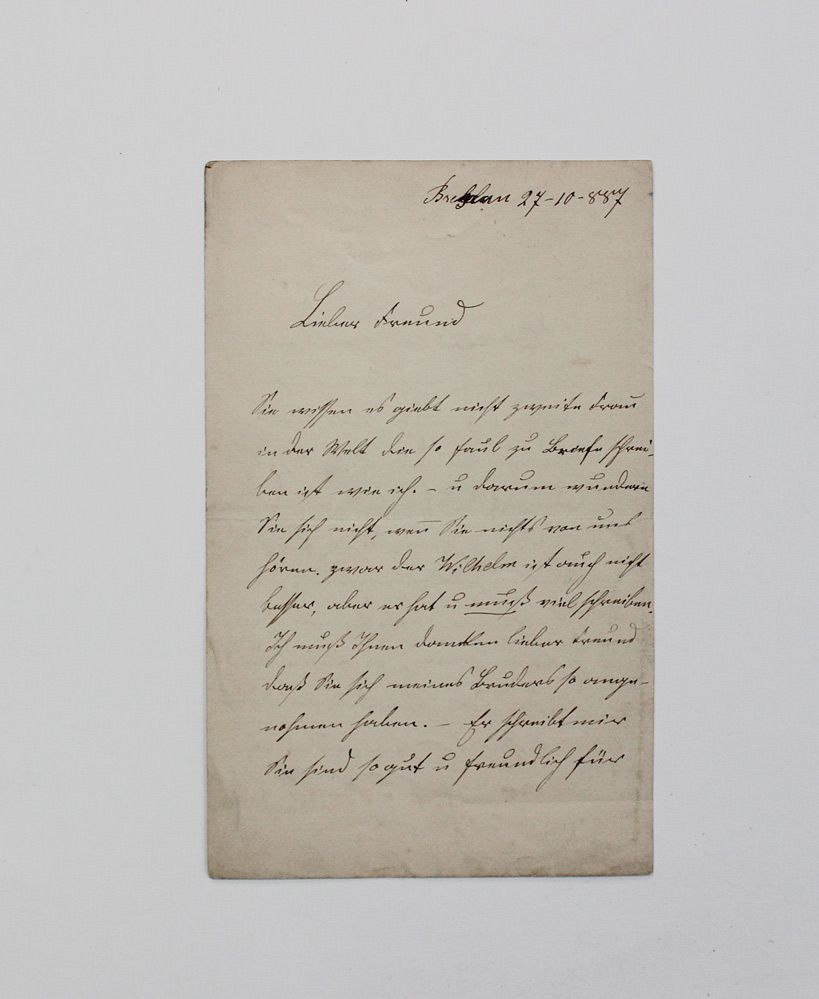 Breslau 27-10-887
Lieber Freund
Sie wissen es giebt nicht zweite Frau
in der Welt die so faul zu Briefe schrei-
ben ist wie ich. – u darum wundern
Sie sich nicht, wen̄ Sie nichts von uns
hören. zwar der Wilhelm ist auch nicht
besser, aber er hat u muß viel schreiben.
Ich muß Ihnen danken lieber Freund
daß Sie sich meines Bruders so ange-
nohmen haben. – Er schreibt mir
Sie sind so gut u freundlich für